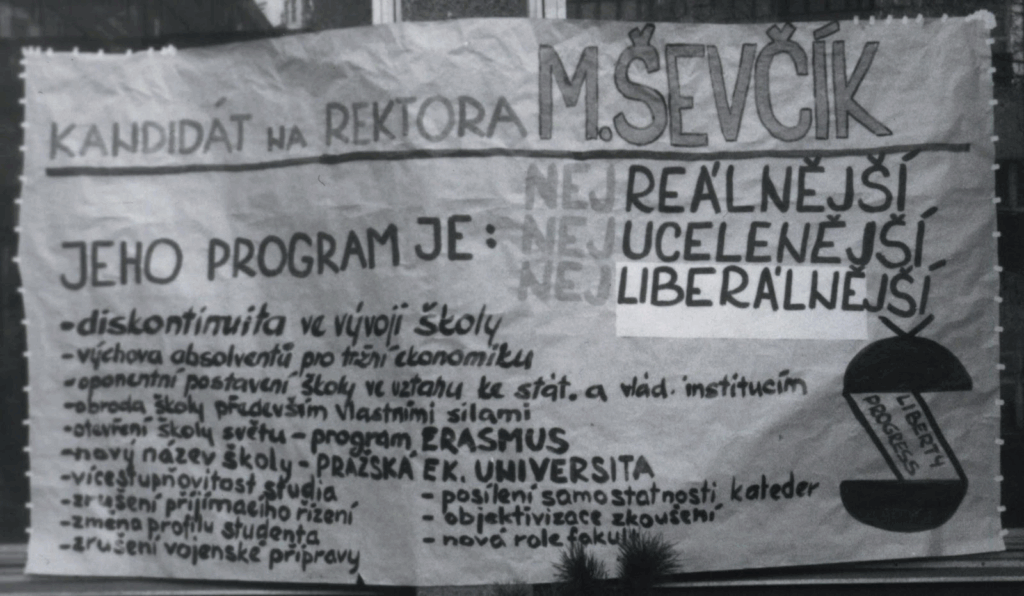 KANDIDÁT NA REKTORA M. ŠEVČÍK
NEJREÁLNĚJŠÍ
JEHO PROGRAM JE: NEJUCELENĚJŠÍ
NEJLIBERÁLNĚJŠÍ
-diskontinuita ve vývoji školy
-výchova absolventů pro tržní ekonomiku
-oponentní postavení školy ve vztahu ke stát. a vlád. institucím
-obroda školy především vlastními silami
-otevření školy světu - program ERASMUS
-nový název školy - PRAŽSKÁ EK. UNIVERSITA
-vícestupňovitost studia
-zrušení přijímacího řízení
-změna profilu studenta
-zrušení vojenské přípravy
- posílení samostatnosti kateder
- objektivizace zkoušení
- nová role fakult
LIBERTY
PROGRESS